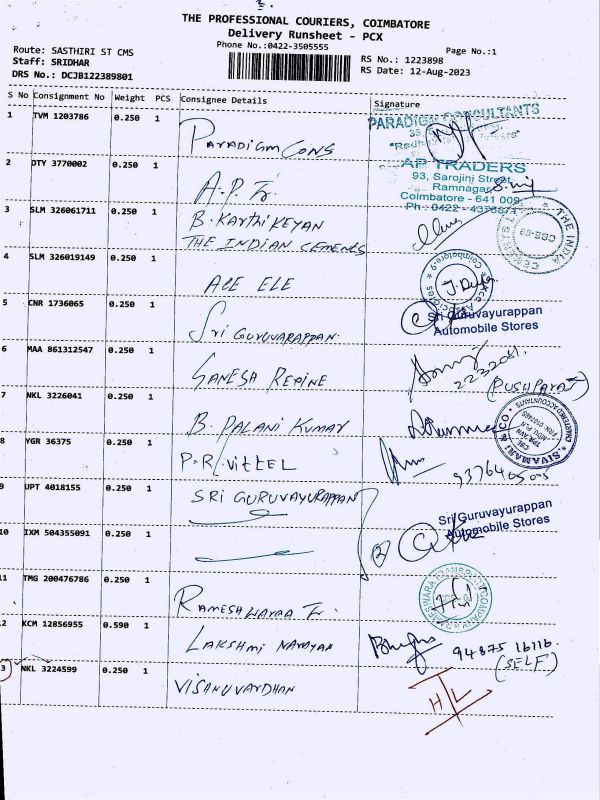 THE PROFESSIONAL COURIERS, COIMBATORE
Delivery Runsheet - PCX
Phone No.:0422-3505555
Page No.:1
Route: SASTHIRI ST CMS
Staff: SRIDHAR
DRS No.: DCJB122389801
RS No.: 1223898
RS Date: 12-Aug-2023
S No Consignment No Weight PCS Consignee Details Signature
1 TVM 1203786 0.250 1 PARADIGM CONS
PARADIGM CONSULTANTS
2 DTY 3770002 0.250 1 A.P. Tr.
AP TRADERS
93, Sarojini Street,
Ramnagar
Coimbatore - 641 009
Ph : 0422 - 4376871
3 SLM 326061711 0.250 1 B. KARTHIKEYAN
THE INDIAN CEMENTS
4 SLM 326019149 0.250 1 ACE ELE
5 CNR 1736065 0.250 1 Sri GURUVARAPPAN
Sri Guruvayurappan
Automobile Stores
6 MAA 861312547 0.250 1 GANESH REAINE
(PUSHPARAJ)
7 NKL 3226041 0.250 1 B. PALANI KUMAR
SIVAMANI & CO
8 YGR 36375 0.250 1 P.R. VITTEL
9 UPT 4018155 0.250 1 SRI GURUVAYURAPPAN
Sri Guruvayurappan
Automobile Stores
10 IXM 504355091 0.250 1
(2)
11 TMG 200476786 0.250 1 RAMESHWARAA Tr.
12 KCM 12856955 0.590 1 LAKSHMI NARAYAN
94875 16116
(SELF)
13 NKL 3224599 0.250 1 VISHNUVARDHAN
H L